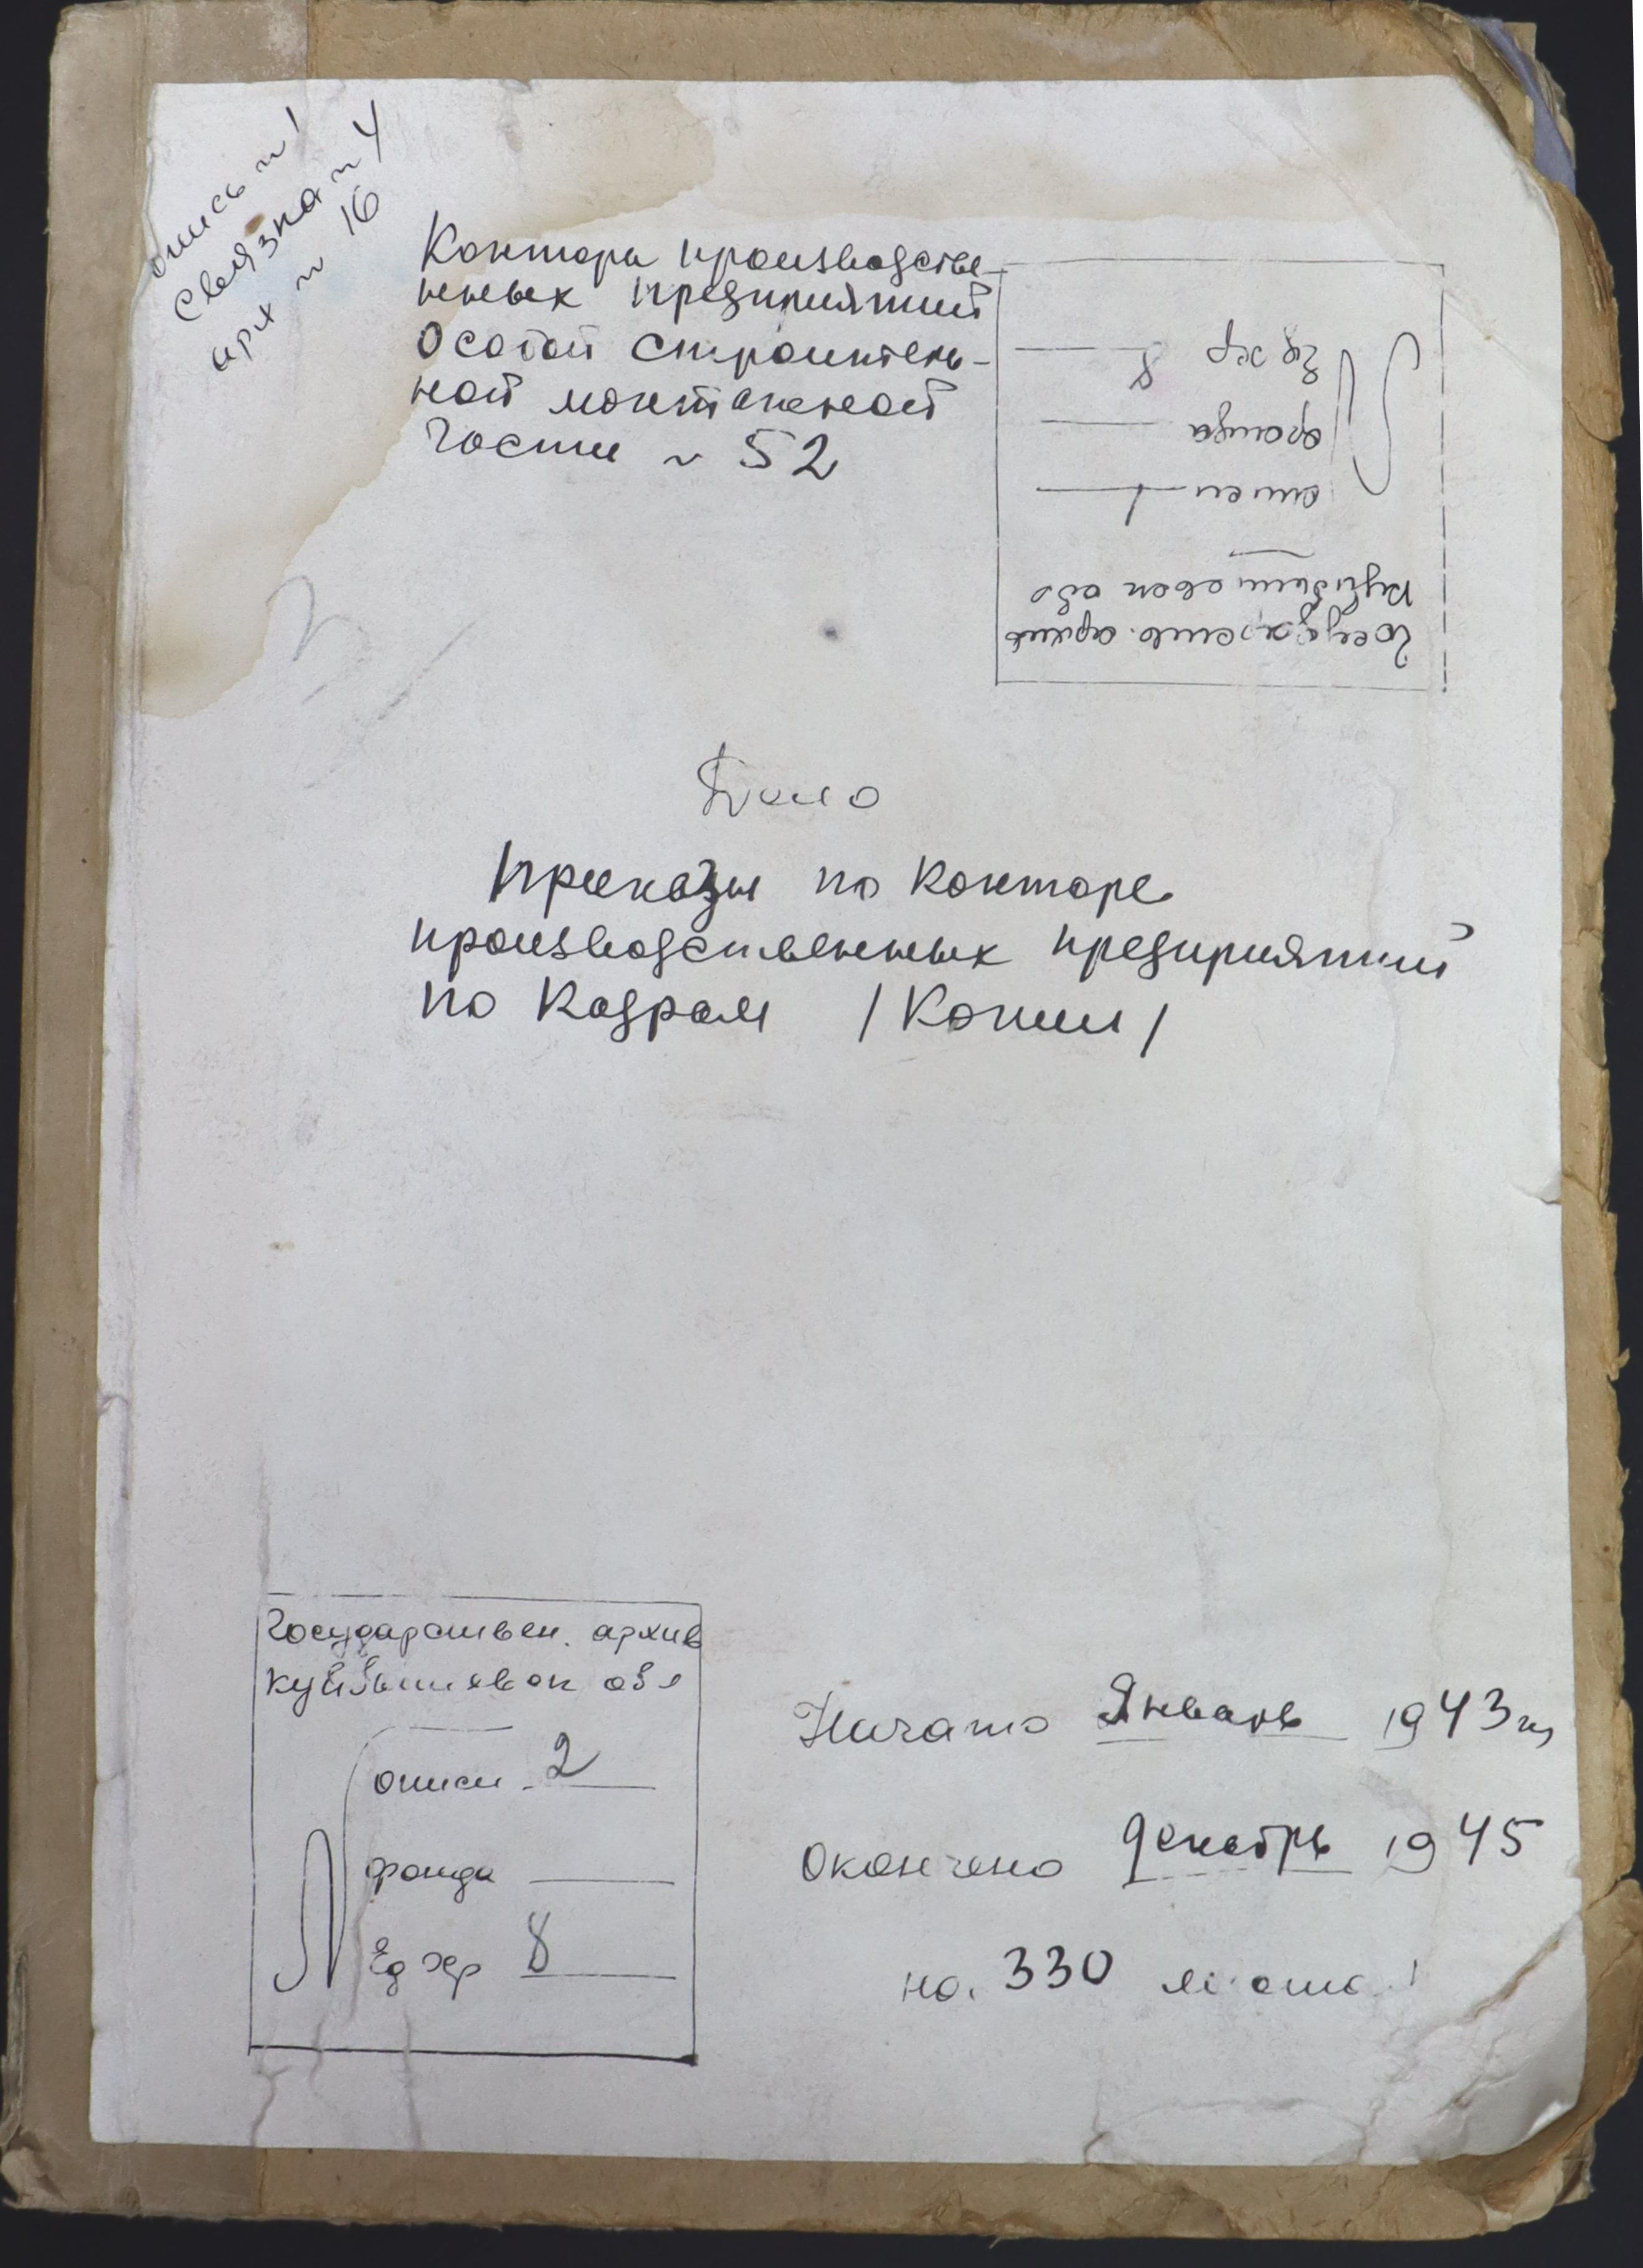 опись N 1
Связка N 4
арх N 16
Контора производстве-
нных предприятий
Особой строитель-
ной монтажной
Части N 52
Государств. архив
Куйбышевск обл
N описи 1
фонда
Ед хр 8
Дело
Приказы по конторе
производственных предприятий
по кадрам /Копии/
Государствен. архив
Куйбышевск обл
N описи 2
фонда
Ед хр 8
Начато Январь 1943 г,
Окончено декабрь 1945
на 330 листа